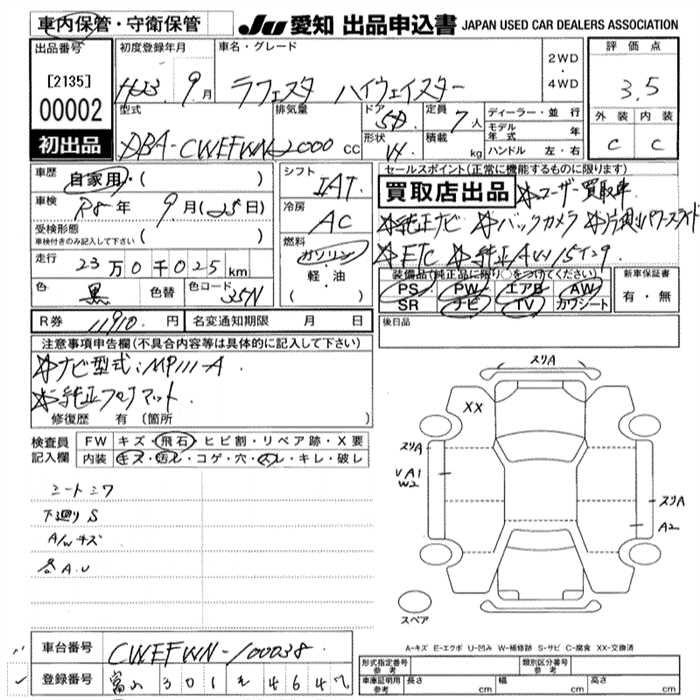 車内保管・守衛保管
JU 愛知 出品申込書 JAPAN USED CAR DEALERS ASSOCIATION
出品番号
[2135]
00002
初出品
初度登録年月
H23 9月
車名・グレード
ラフェスタ ハイウェイスター
2WD
・
4WD
評価点
3.5
外装 内装
C C
型式
DBA-CWEFWN
排気量
2000 cc
ドア
5D
形状
W
定員
7人
積載
kg
ディーラー・並行
モデル年式 年
ハンドル 左・右
車歴
自家用・( )
車検
R8年 9月(25日)
受検形態
車検付きのみ記入して下さい ( )
走行
23万0千025km
色
黒
色替
色コード
35N
シフト
IAT
冷房
AC
燃料
ガソリン
・
軽・油
( )
セールスポイント(正常に機能するものに限ります)
買取店出品 ☆ユーザー買取車
☆純正ナビ ☆バックカメラ ☆片側パワースライド
☆ETC ☆純正AW15インチ
装備品(純正品に限り○をつけてください)
PS PW エアB AW
SR ナビ TV カワシート
新車保証書
有・無
後日品
R券 11910円
名変通知期限 月 日
注意事項申告欄(不具合内容等は具体的に記入して下さい)
☆ナビ型式:MP111-A
☆純正フロアマット
修復歴 有 (箇所 )
検査員記入欄
FW キズ・飛石・ヒビ割・リペア跡・X要
内装 キズ・汚レ・コゲ・穴・スレ・キレ・破レ
シートシワ
下廻りS
A/Wキズ
各A.U
スリA
XX
スリA
UA1
W2
スリA
A2
スペア
A-キズ E-エクボ U-凹み W-補修跡 S-サビ C-腐食 XX-交換済
車台番号 CWEFWN-100038
登録番号 富山 301
形式指定番号 参考
類別区分番号 参考
車庫証明用参考 長さ cm 幅 cm 高さ cm